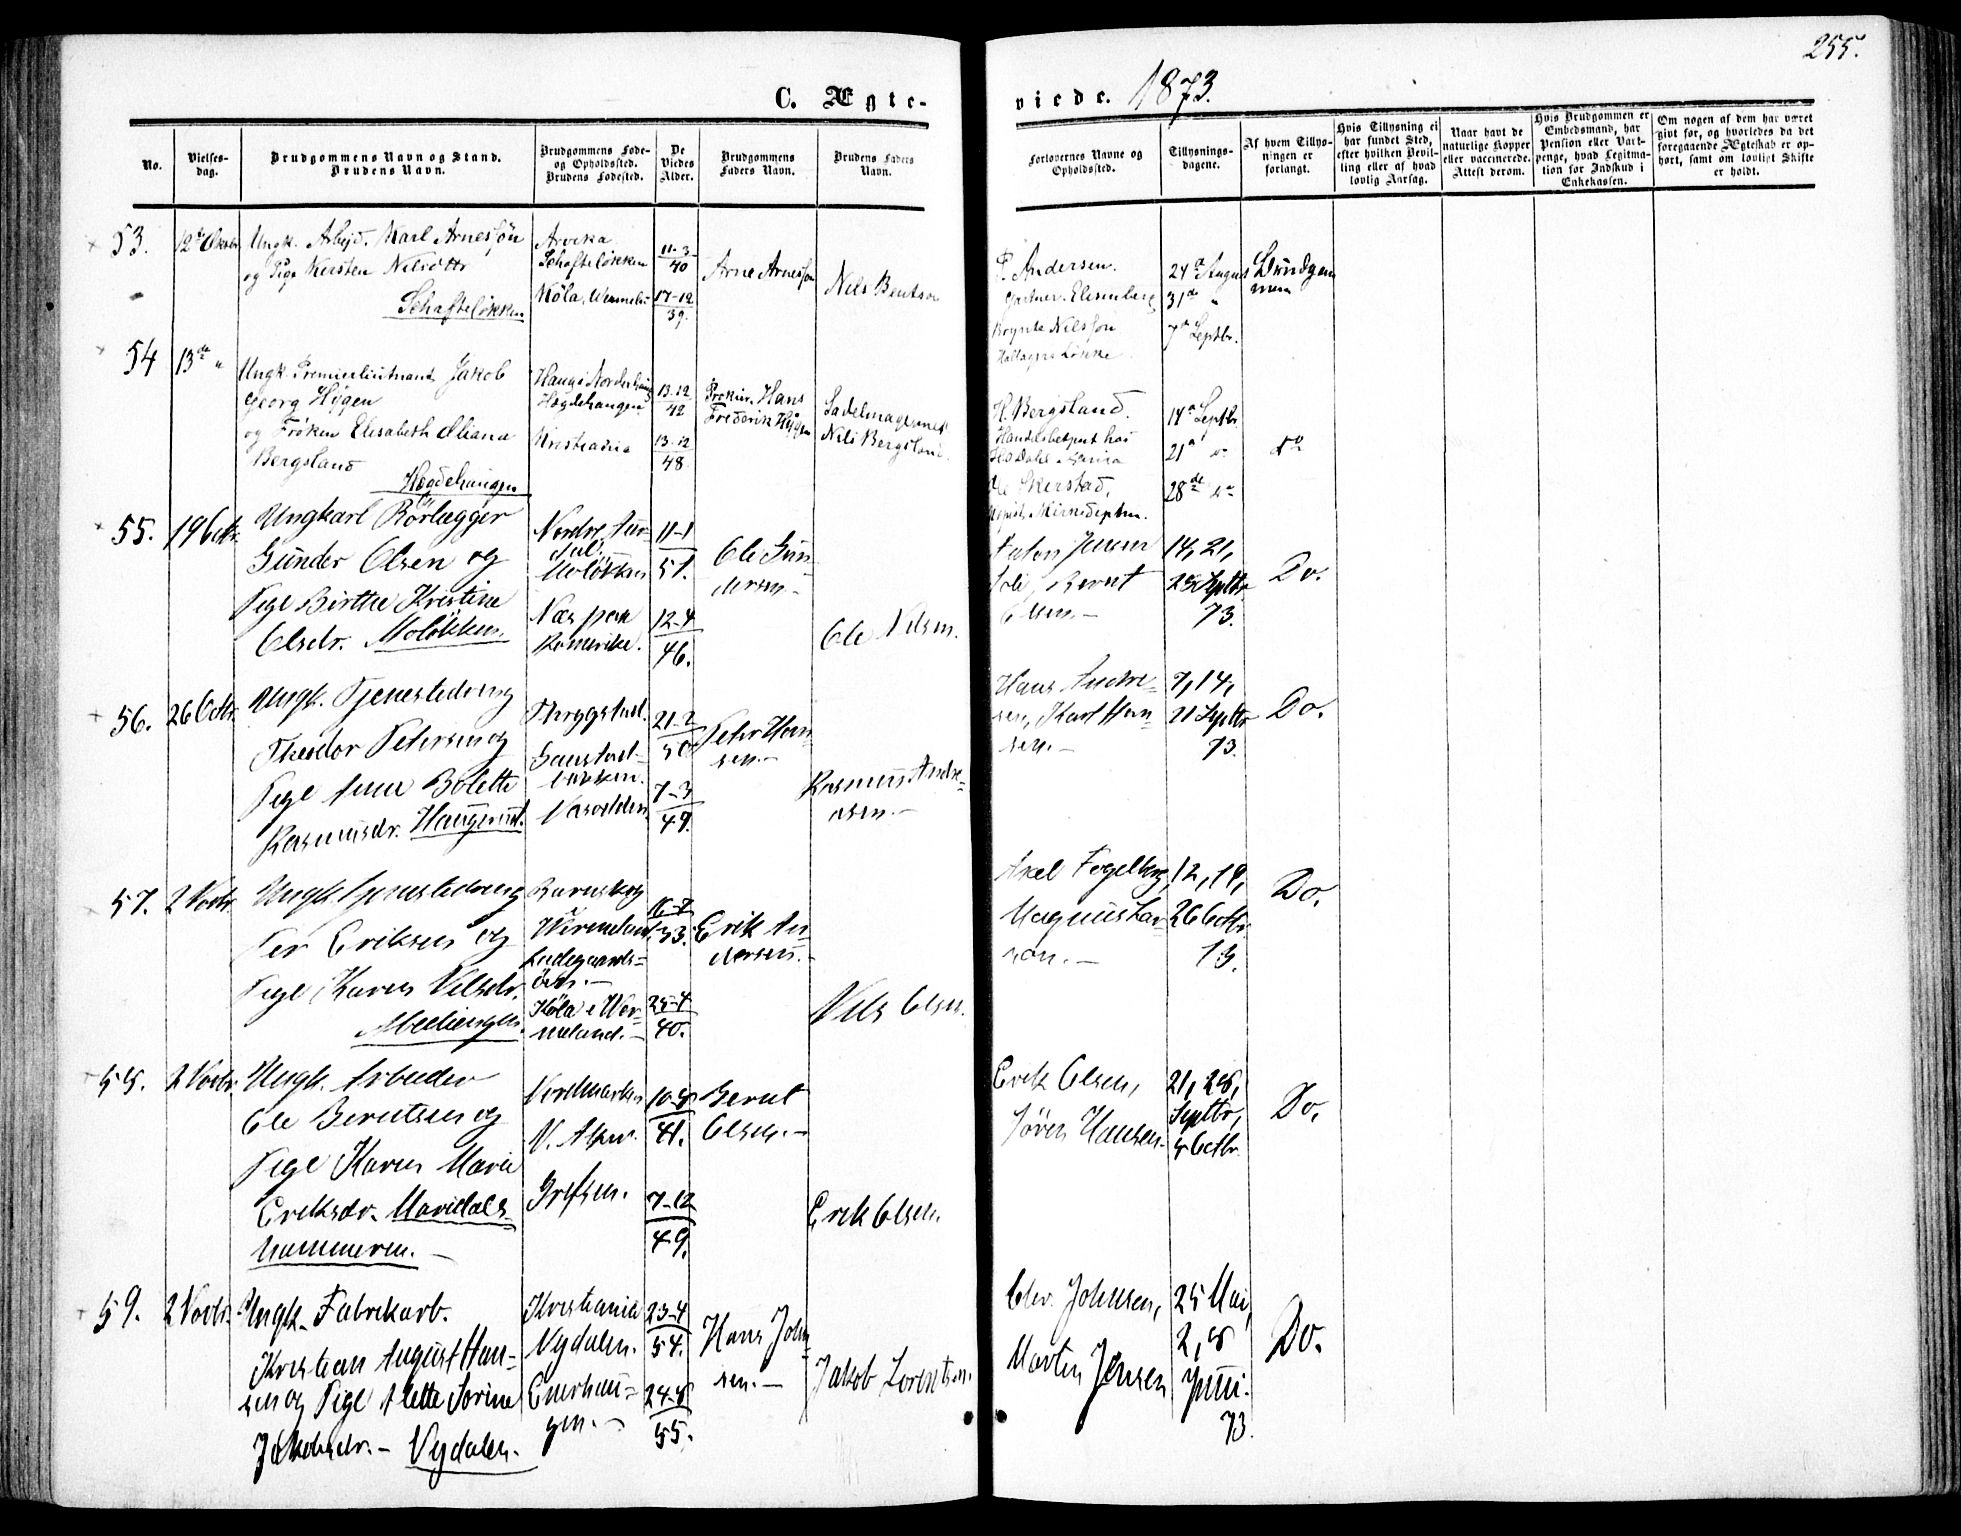 255.
C. Ægte-
viede. 1873.
No.
Vielses-
dag.
Brudgommens Navn og Stand.
Brudens Navn.
Brudgommens Føde-
og Opholdssted.
Brudens Fødested.
De
Viedes
Alder.
Brudgommens
Faders Navn.
Brudens Faders
Navn.
Forlovernes Navne og
Opholdssted.
Tillysnings-
dagene.
Af hvem Tillys-
ningen er
forlangt.
Hvis Tillysning ei
har fundet Sted,
efter hvilken Bevil-
ling eller af hvad
lovlig Aarsag.
Naar havt de
naturlige Kopper
eller vaccinerede.
Attest derom.
Hvis Brudgommen er
Embedsmand, har
Pension eller Vart-
penge, hvad Legitima-
tion for Indskud i
Enkekassen.
Om nogen af dem har været
gift før, og hvorledes da det
foregaaende Ægteskab er op-
hørt, samt om lovligt Skifte
er holdt.
53.
12te Oktbr
Ungk. Arbejd. Karl Arnesøn
og Pige Kersten Nilsdttr
Schafteløkken
Arvika
Schafteløkken
Køla, Wermeln
11-3
40
17-12
39.
Arne Arnesson
Nils Bentson
P. Andersen.
Gartner. Elisenberg
Brynte Nilsson
Løkke
24de August
31de "
7de Septbr.
Brudgom
men
54
13de "
Ungk. Premierlieutnand Jakob
Georg Hygen
og Frøken Elisabeth
Bergsland
Hægdehaugen
Haug i Norderhaug
Hægdehaugen
Kristiania
13-12
42
13-12
48
Hans
Frederik Hygen
Sadelmagermest
Nils Bergsland.
H. Bergsland.
14de Septbr
21de do
28de do
do
55.
19 Octbr.
Ungkarl Rørlægger
Gunder Olsen og
Pige Birthe Kristine
Olsdr. Moløkken.
Nordre Aur-
dal.
Moløkken
Næs paa
Romerike.
11-1
51.
12-4
46.
Ole Gun
dersen.-
Ole Nilsen.
Anton Jensen
Bernt
Olsen.-
14, 21,
28 Septbr
73.
Do.
56.
26 Octbr.
Ungk. Tjenestedreng
Theodor Petersen og
Pige Anne Bolette
Rasmusdr. Haugerud.
Thrygstad.
Gaustad-
løkken.
21-2
50
7-3
49.
Peter Han
sen.-
Rasmus Andre-
asen.-
Hans Andre-
sen, Karl Han
sen.-
7, 14,
21 Septbr
73.
Do.
57.
2 Novbr.
Ungk. Tjenestedreng
Per Eriksen og
Pige Karen Nilsdr.
Wermeland
Ladegaards-
øen.-
Køla i Wer-
meland.-
33.
25-4
40.
Erik An
dersen.-
Nils Olsen.
Axel Fogelberg,
Magnus Lar-
son.-
12, 19,
26 Octbr.
73.
Do.
58.
2 Novbr.
Ungk. Arbeider
Ole Berntsen og
Pige Karen Marie
Eriksdr. Maridals-
hammeren.-
Nordmarken
N. Aker.
Grefsen.
10-8
41.
7-12
49.
Bernt
Olsen.-
Erik Olsen.
Erik Olsen,
Søren Hansen.
21, 28,
Septbr,
5 Octbr.
Do.
59.
2 Novbr.
Ungk. Fabrikarb.
Kristian August Han-
sen og Pige Alette Sorine
Jakobsdr.- Nydalen.
Kristiania
Nydalen.
Enerhau-
gen.-
23-4
54.
24-8
55.
Hans Johan
sen.-
Jakob Lorentsen.
Chr. Johnsen,
Martin Jensen
25 Mai,
2, 8
Juni.
73.
Do.